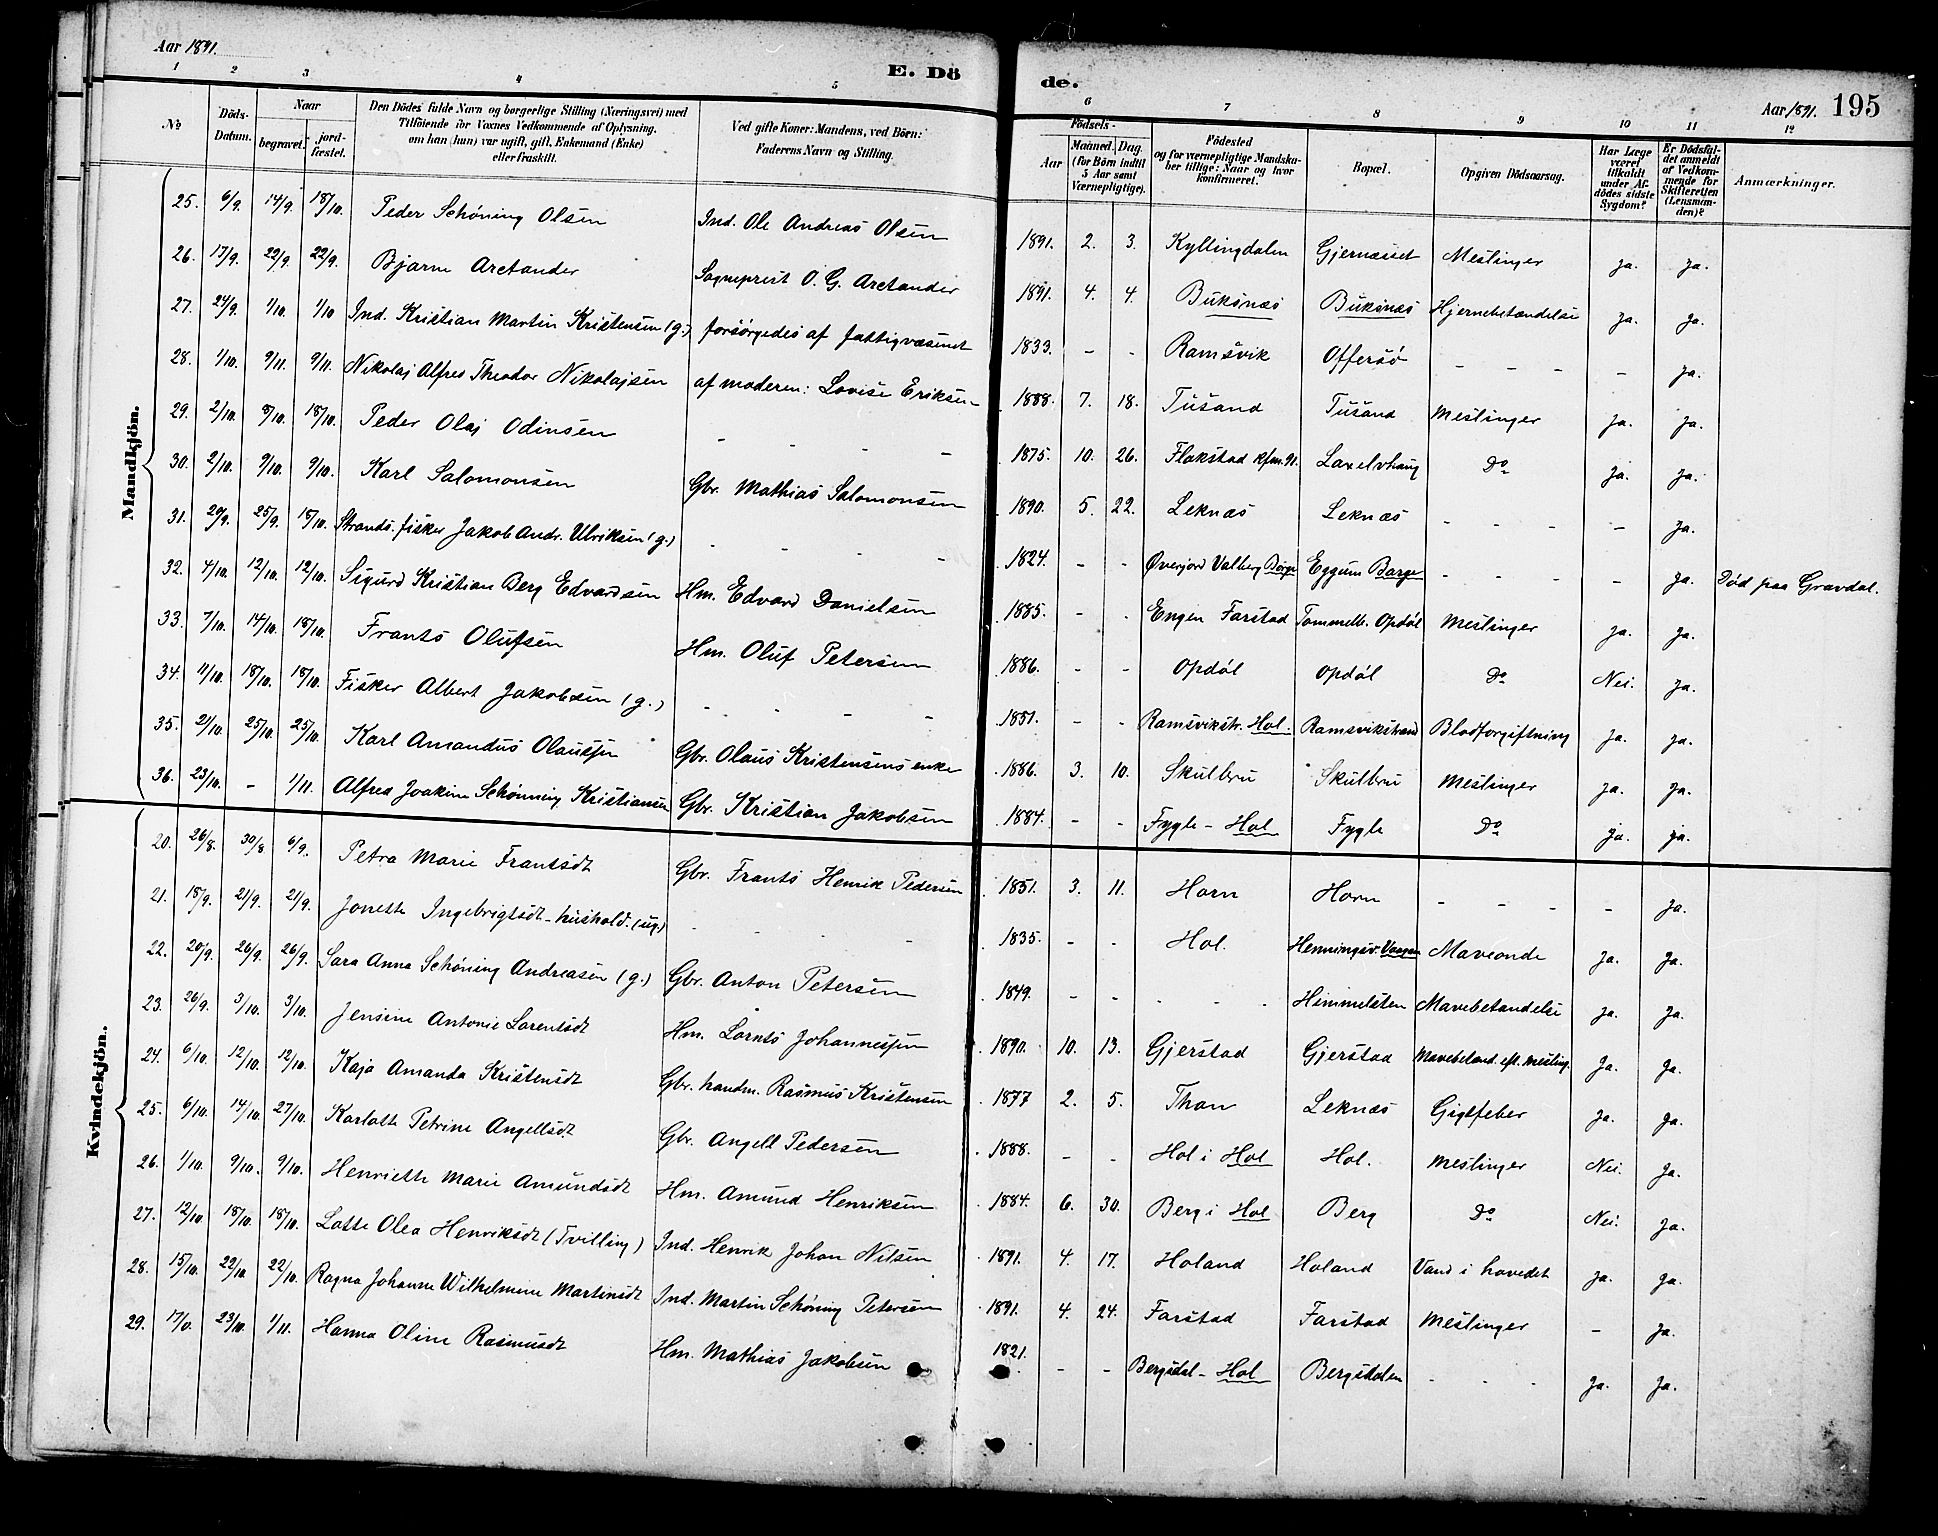 Aar 1891.
E. Dö
de.
Aar 1891. 195
1 2 3 4 5 6 7 8 9 10 11 12
No
Döds-Datum.
Naar
begravet.
jord-fæstet.
Den Dödes fulde Navn og borgerlige Stilling (Næringsvei) med
Tilföiende for Voxnes Vedkommende af Oplysning,
om han (hun) var ugift, gift, Enkemand (Enke)
eller fraskilt.
Ved gifte Koner: Mandens, ved Börn:
Faderens Navn og Stilling.
Födsels-
Aar
Maaned. Dag.
(for Börn indtil
5 Aar samt
Værnepligtige).
Födested
og for værnepligtige Mandska-
ber tillige: Naar og hvor
konfirmeret.
Bopæl.
Opgiven Dödsaarsag.
Har Læge
været
tilkaldt
under Af-
dödes sidste
Sygdom?
Er Dödsfal-
det anmeldt
af Vedkom-
mende for
Skifteretten
(Lensman-
den)?
Anmærkninger.
Mandkjön.
25. 6/9. 14/9. 18/10. Peder Schöning Olsen Ind. Ole Andreas Olsen 1891. 2. 3. Kyllingdalen Gjernæsset Meslinger ja. ja.
26. 17/9. 22/9. 22/9. Bjarne Arctander Sogneprest O. G. Arctander 1891. 4. 4. Buksnæs Buksnæs Hjernebetændelse ja. ja.
27. 24/9. 1/10. 1/10 Ind. Kristian Martin Kristensen (g.) forsörgedes af fattigvæsenet 1833. - - Ramsvik Offersö - - - - ja.
28. 1/10. 9/11. 9/11. Nikolaj Alfred Theodor Nikolajsen af moderen: Lovise Eriksen 1888. 7. 18. Tusand Tusand Meslinger ja. ja.
29. 2/10. 8/10. 18/10. Peder Olaj Odinsen - - - 1875. 10. 26. Flakstad kfm. 91. Laxelvhaug Do ja. ja.
30. 2/10. 9/10. 9/10. Karl Salomonsen Gbr. Mathias Salomonsen 1890. 5. 22. Leknæs Leknæs - - - - ja.
31. 20/9. 25/9. 18/10. Strands. fisker Jakob Andr. Ulriksen (g.) - - - - 1824. - - Øverjord Valberg Borge Eggum Borge - - - - ja. Död paa Gravdal.
32. 4/10. 12/10. 12/10. Sigurd Kristian Berg Edvardsen Hm. Edvard Danielsen 1885. - - Engen Farstad Tommelb. Opdöl Meslinger ja. ja.
33. 7/10. 14/10. 18/10. Frants Olufsen Hm. Oluf Petersen 1886. - - Opdöl Opdöl Do Nei. ja.
34. 11/10. 18/10. 18/10. Fisker Albert Jakobsen (g.) - - - - 1851. - - Ramsvikstr. Hol. Ramsvikstrand Blodforgiftning ja. ja.
35. 21/10. 25/10. 25/10. Karl Amandus Olaussen Gbr. Olaus Kristensens enke 1886. 3. 10. Skulbru Skulbru Meslinger ja. ja.
36. 23/10. - 1/11. Alfred Joakim Schönning Kristiansen Gbr. Kristian Jakobsen 1884. - - Fygle - Hol Fygle Do ja. ja.
Kvindekjön.
20. 26/8. 30/8. 6/9. Petra Marie Frantsdt Gbr. Frants Henrik Pedersen 1851. 3. 11. Horn Horn - - - - ja.
21. 18/9. 21/9. 21/9. Jonette Ingebrigtsdt - hushold. (ug.) - - - 1835. - - Hol. Henningsv. Vaagan Maveonde ja. ja.
22. 20/9. 26/9. 26/9. Sara Anna Schöning Andreasen (g.) Gbr. Anton Petersen 1849. - - - - - Himmelsten Mavebetændelse ja. ja.
23. 26/9. 3/10. 3/10. Jensine Antonie Larentsdt Hm. Lornts Johannessen 1890. 10. 13. Gjerstad Gjerstad Mavebetænd. eft. mesling. ja. ja.
24. 6/10. 12/10. 12/10. Kaja Amanda Kristensdt Gbr. handm. Rasmus Kristensen 1877 2. 5. Thon Leknæs Gigtfeber ja. ja.
25. 6/10. 14/10. 27/10. Karlotte Petrine Angellsdt. Gbr. Angell Pedersen 1888. - - Hol i Hol Hol. Meslinger Nei. ja.
26. 1/10. 9/10. 9/10. Henriette Marie Amundsdt Hm. Amund Henriksen 1884. 6. 30. Berg i Hol Berg Do Nei. ja.
27. 12/10. 18/10. 18/10. Lotte Olea Henriksdt (Tvilling) Ind. Henrik Johan Nilsen 1891. 4. 17. Holand Holand Vand i hovedet ja. ja.
28. 15/10. 22/10. 22/10. Ragna Johanne Wilhelmine Martinsdt Ind. Martin Schöning Petersen 1891. 4. 24. Farstad Farstad Meslinger - ja.
29. 23/10. 1/11. Hanna Oline Rasmusdt Hm. Mathias Jakobsen 1821. - - Bergsdal - Hol Bergsdalen - - - ja. ja.